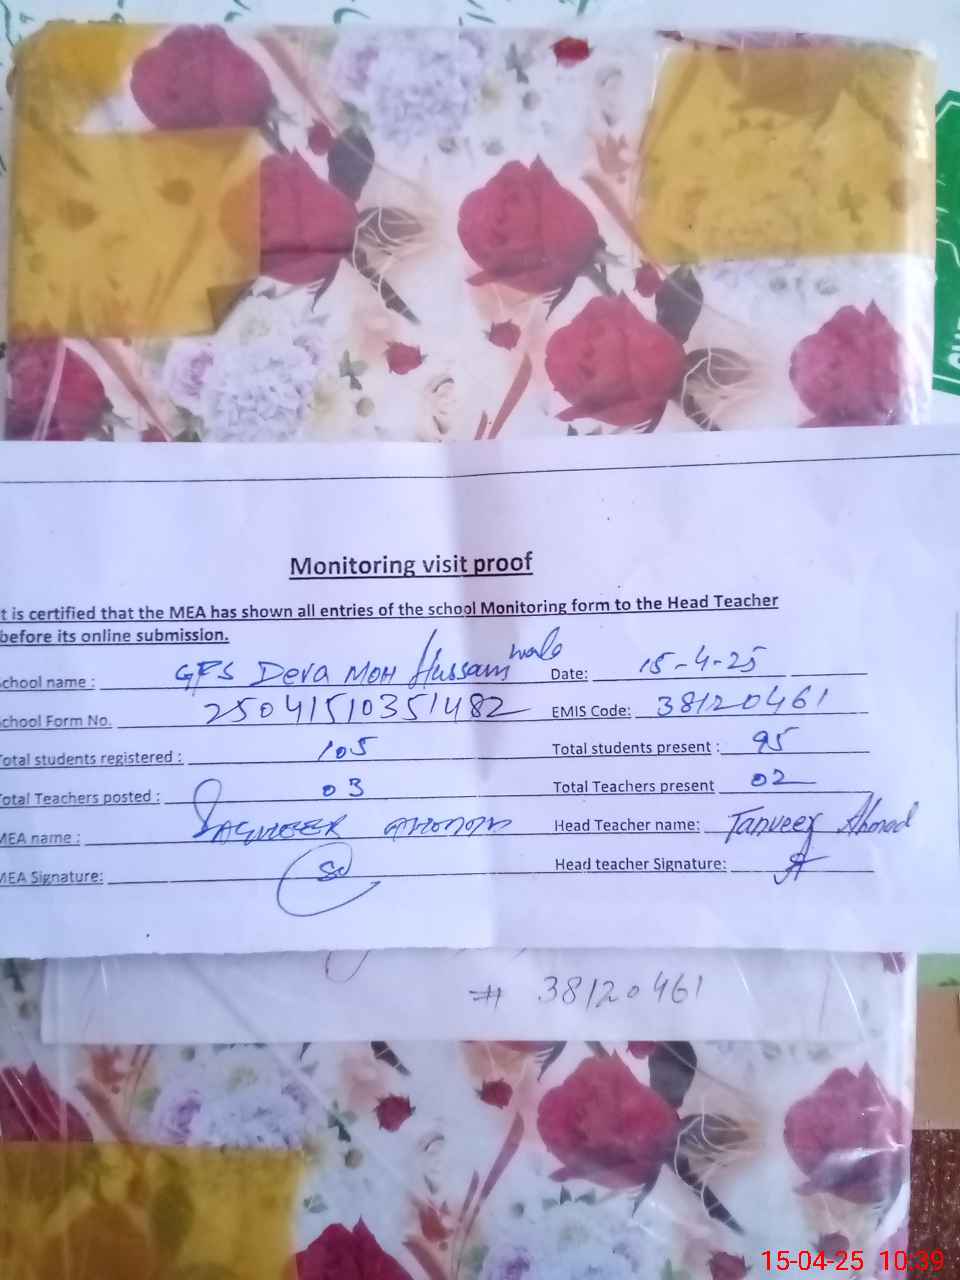 Monitoring visit proof
t is certified that the MEA has shown all entries of the school Monitoring form to the Head Teacher
before its online submission.
chool name : GPS Dera MOH Hussain wala Date: 15-4-25
chool Form No. 25041510351482 EMIS Code: 38120461
otal students registered : 105 Total students present : 95
otal Teachers posted : 03 Total Teachers present 02
MEA name : Head Teacher name: Tanveer Ahmed
MEA Signature: Head teacher Signature:
# 38120461
15-04-25 10:39